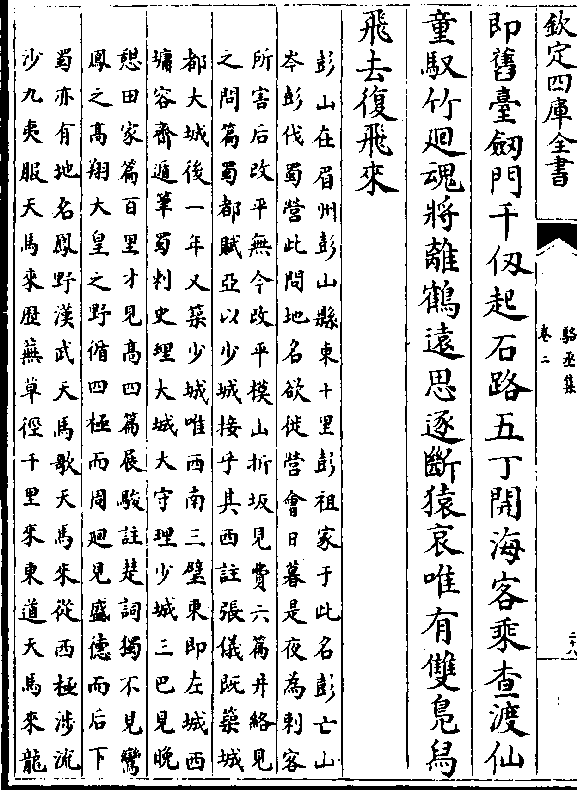 欽定四庫全書
駱丞集
卷二
二十八
即舊臺劒門千仭起石路五丁開海客乗查渡仙
童馭竹廻魂將離鶴遠思逐斷猿哀唯有雙鳬舄
飛去復飛來
彭山在眉州彭山縣東十里彭祖家于此名彭亡山
岑彭伐蜀營此問地名欲徙營會日暮是夜為刺客
所害后改平無今改平模山折坂見費六篇井絡見
之問篇蜀都賦亞以少城接乎其西註張儀既築城
都大城後一年又築少城唯西南三壁東即左城西
墉容齋遁筆蜀刺史理大城大守理少城三巴見晚
憇田家篇百里才見高四篇展駿註楚詞獨不見鸞
鳳之髙翔大皇之野循四極而周廻見盛德而后下
蜀亦有地名鳳野漢武天馬歌天馬來從西極涉流
沙九夷服天馬來歴蕪草徑千里來東道天馬來龍